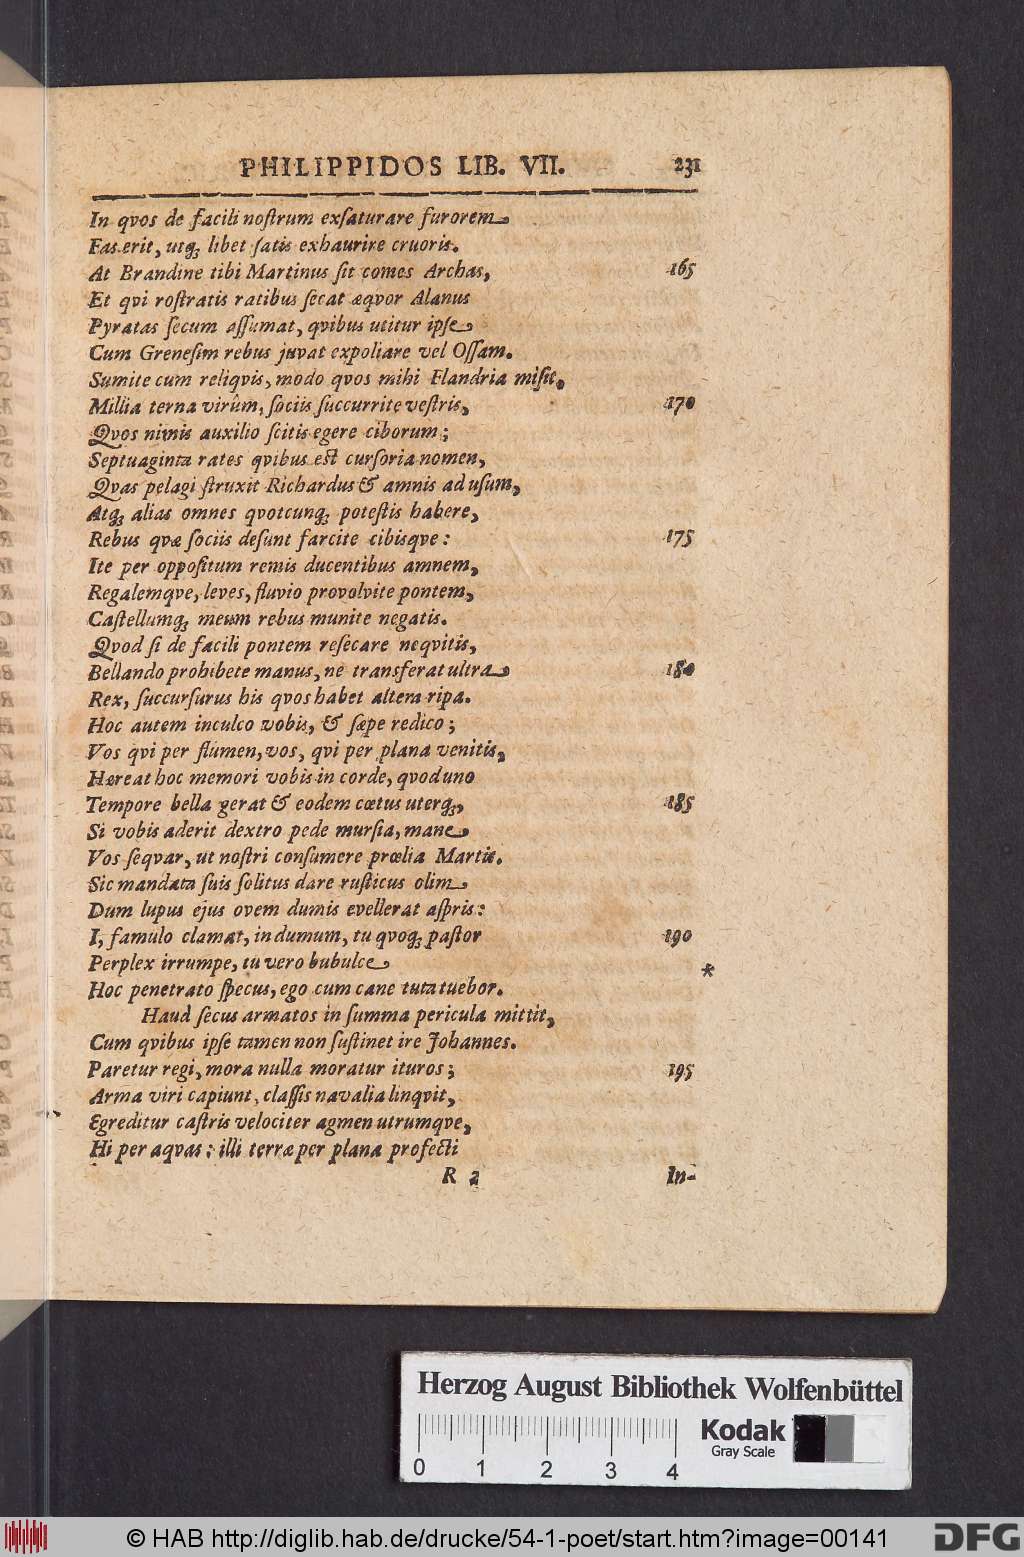 PHILIPPIDOS LIB. VII. 231
In qvos de facili noſtrum exſaturare furorem
Fas erit, utq; libet ſatis exhaurire cruoris.
At Brandine tibi Martinus ſit comes Archas, 165
Et qvi roſtratis ratibus ſecat æqvor Alanus
Pyratas ſecum aſſumat, qvibus utitur ipſe
Cum Greneſim rebus juvat expoliare vel Oſſam.
Sumite cum reliqvis, modo qvos mihi Flandria miſit,
Millia terna virûm, ſociis ſuccurrite veſtris, 170
Qvos nimis auxilio ſcitis egere ciborum;
Septuaginta rates qvibus eſt curſoria nomen,
Qvas pelagi ſtruxit Richardus & amnis ad uſum,
Atq; alias omnes qvotcunq; poteſtis habere,
Rebus qvæ ſociis deſunt farcite cibisqve: 175
Ite per oppoſitum remis ducentibus amnem,
Regalemqve, leves, fluvio provolvite pontem,
Caſtellumq; meum rebus munite negatis.
Qvod ſi de facili pontem reſecare neqvitis,
Bellando prohibete manus, ne transferat ultra 180
Rex, ſuccurſurus his qvos habet altera ripa.
Hoc autem inculco vobis, & ſæpe redico;
Vos qvi per flumen, vos, qvi per plana venitis,
Hæreat hoc memori vobis in corde, qvod uno
Tempore bella gerat & eodem cœtus uterq;, 185
Si vobis aderit dextro pede murſia, mane
Vos ſeqvar, ut noſtri conſumere prœlia Martis.
Sic mandata ſuis ſolitus dare ruſticus olim
Dum lupus ejus ovem dumis evellerat aſpris:
I, famulo clamat, in dumum, tu qvoq; paſtor 190
Perplex irrumpe, tu vero bubulce *
Hoc penetrato ſpecus, ego cum cane tuta tuebor.
Haud ſecus armatos in ſumma pericula mittit,
Cum qvibus ipſe tamen non ſuſtinet ire Johannes.
Paretur regi, mora nulla moratur ituros; 195
Arma viri capiunt, claſſis navalia linqvit,
Egreditur caſtris velociter agmen utrumqve,
Hi per aqvas: illi terræ per plana profecti
R 2 In-
Herzog August Bibliothek Wolfenbüttel
0 1 2 3 4
Kodak
Gray Scale
© HAB http://diglib.hab.de/drucke/54-1-poet/start.htm?image=00141
DFG